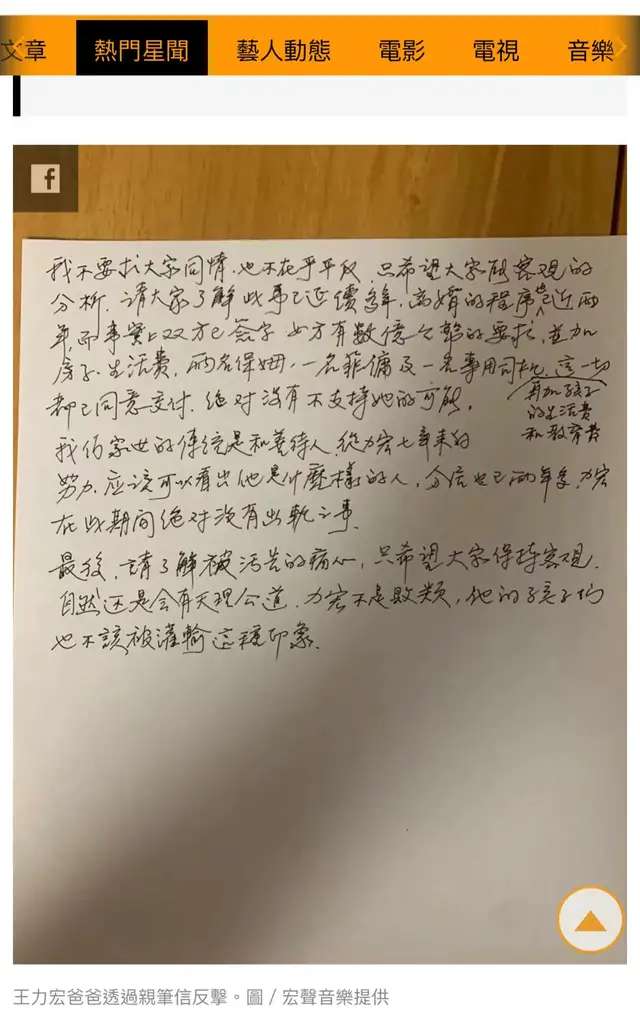 文章 熱門星聞 藝人動態 電影 電視 音樂
f
我不要求大家同情.也不在乎平反.只希望大家能客觀的
分析.請大家了解此事已延續多年,离婚的程序也近兩
年,而事實上双方已簽字 女方有數億台幣的要求,並加
房子.生活費,兩名保姆,一名菲傭及一名專用司机.這一切
再加孩子
的生活費
和教育費
都已同意交付.绝对沒有不支持她的可能.
我们家世的傳統是和善待人.從力宏七辛来的
努力.应該可以看出他是什麼樣的人,分居也已兩年多,力宏
在此期間绝对沒有出軌之事.
最後,請了解被污告的痛心,只希望大家保持客观.
自然还是会有天理公道.力宏不是敗類,他的孩子们
也不該被灌輸這種印象.
王力宏爸爸透過親筆信反擊。圖/宏聲音樂提供